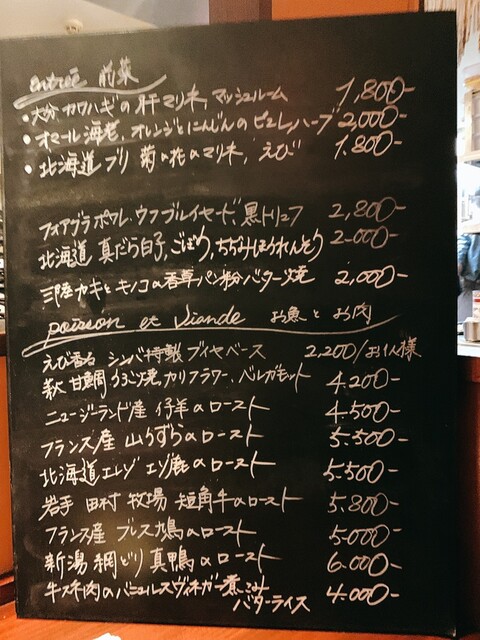 entrée 前菜
・大分 カワハギの肝マリネ、マッシュルーム 1,800-
・オマール海老、オレンジとにんじんのピュレ、ハーブ 2,000-
・北海道 ブリ 菊の花のマリネ、えび 1,800-
フォアグラポワレ、ウフブルイヤード、黒トリュフ 2,800-
北海道 真だら白子、ごぼう、ちぢみほうれんそう 2,000-
三陸カキとキノコの香草パン粉バター焼 2,000-
poisson et viande お魚とお肉
えび香る シンバ特製 ブイヤベース 2,200/お1人様
萩 甘鯛 うろこ焼、カリフラワー、ベルガモット 4,200-
ニュージーランド産 仔羊のロースト 4,500-
フランス産 山うずらのロースト 5,500-
北海道エレゾ エゾ鹿のロースト 5,500-
岩手 田村 牧場 短角牛のロースト 5,800-
フランス産 ブレス鳩のロースト 5,000-
新潟 網どり 真鴨のロースト 6,000-
牛スネ肉のバニュルスヴィネガー煮込み 4,000-
バターライス